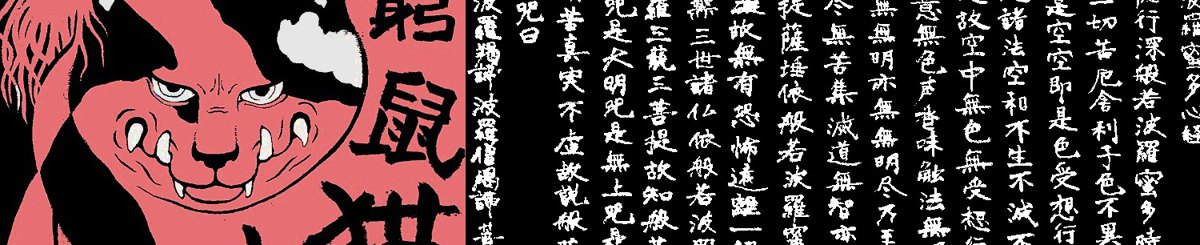 波羅蜜多心経
行深般若波羅蜜多時
一切苦厄舎利子色不異
是空空即是色受想行
是諸法空相不生不滅不
是故空中無色無受想行
意無色声香味触法無
無無明亦無無明尽乃至
尽無苦集滅道無智亦
提薩埵依般若波羅蜜
礙故無有恐怖遠離一切
無三世諸仏依般若波
羅三藐三菩提故知般
呪是大明呪是無上呪是
苦真実不虚故説般
呪曰
波羅羯諦波羅僧羯諦菩
窮鼠猫